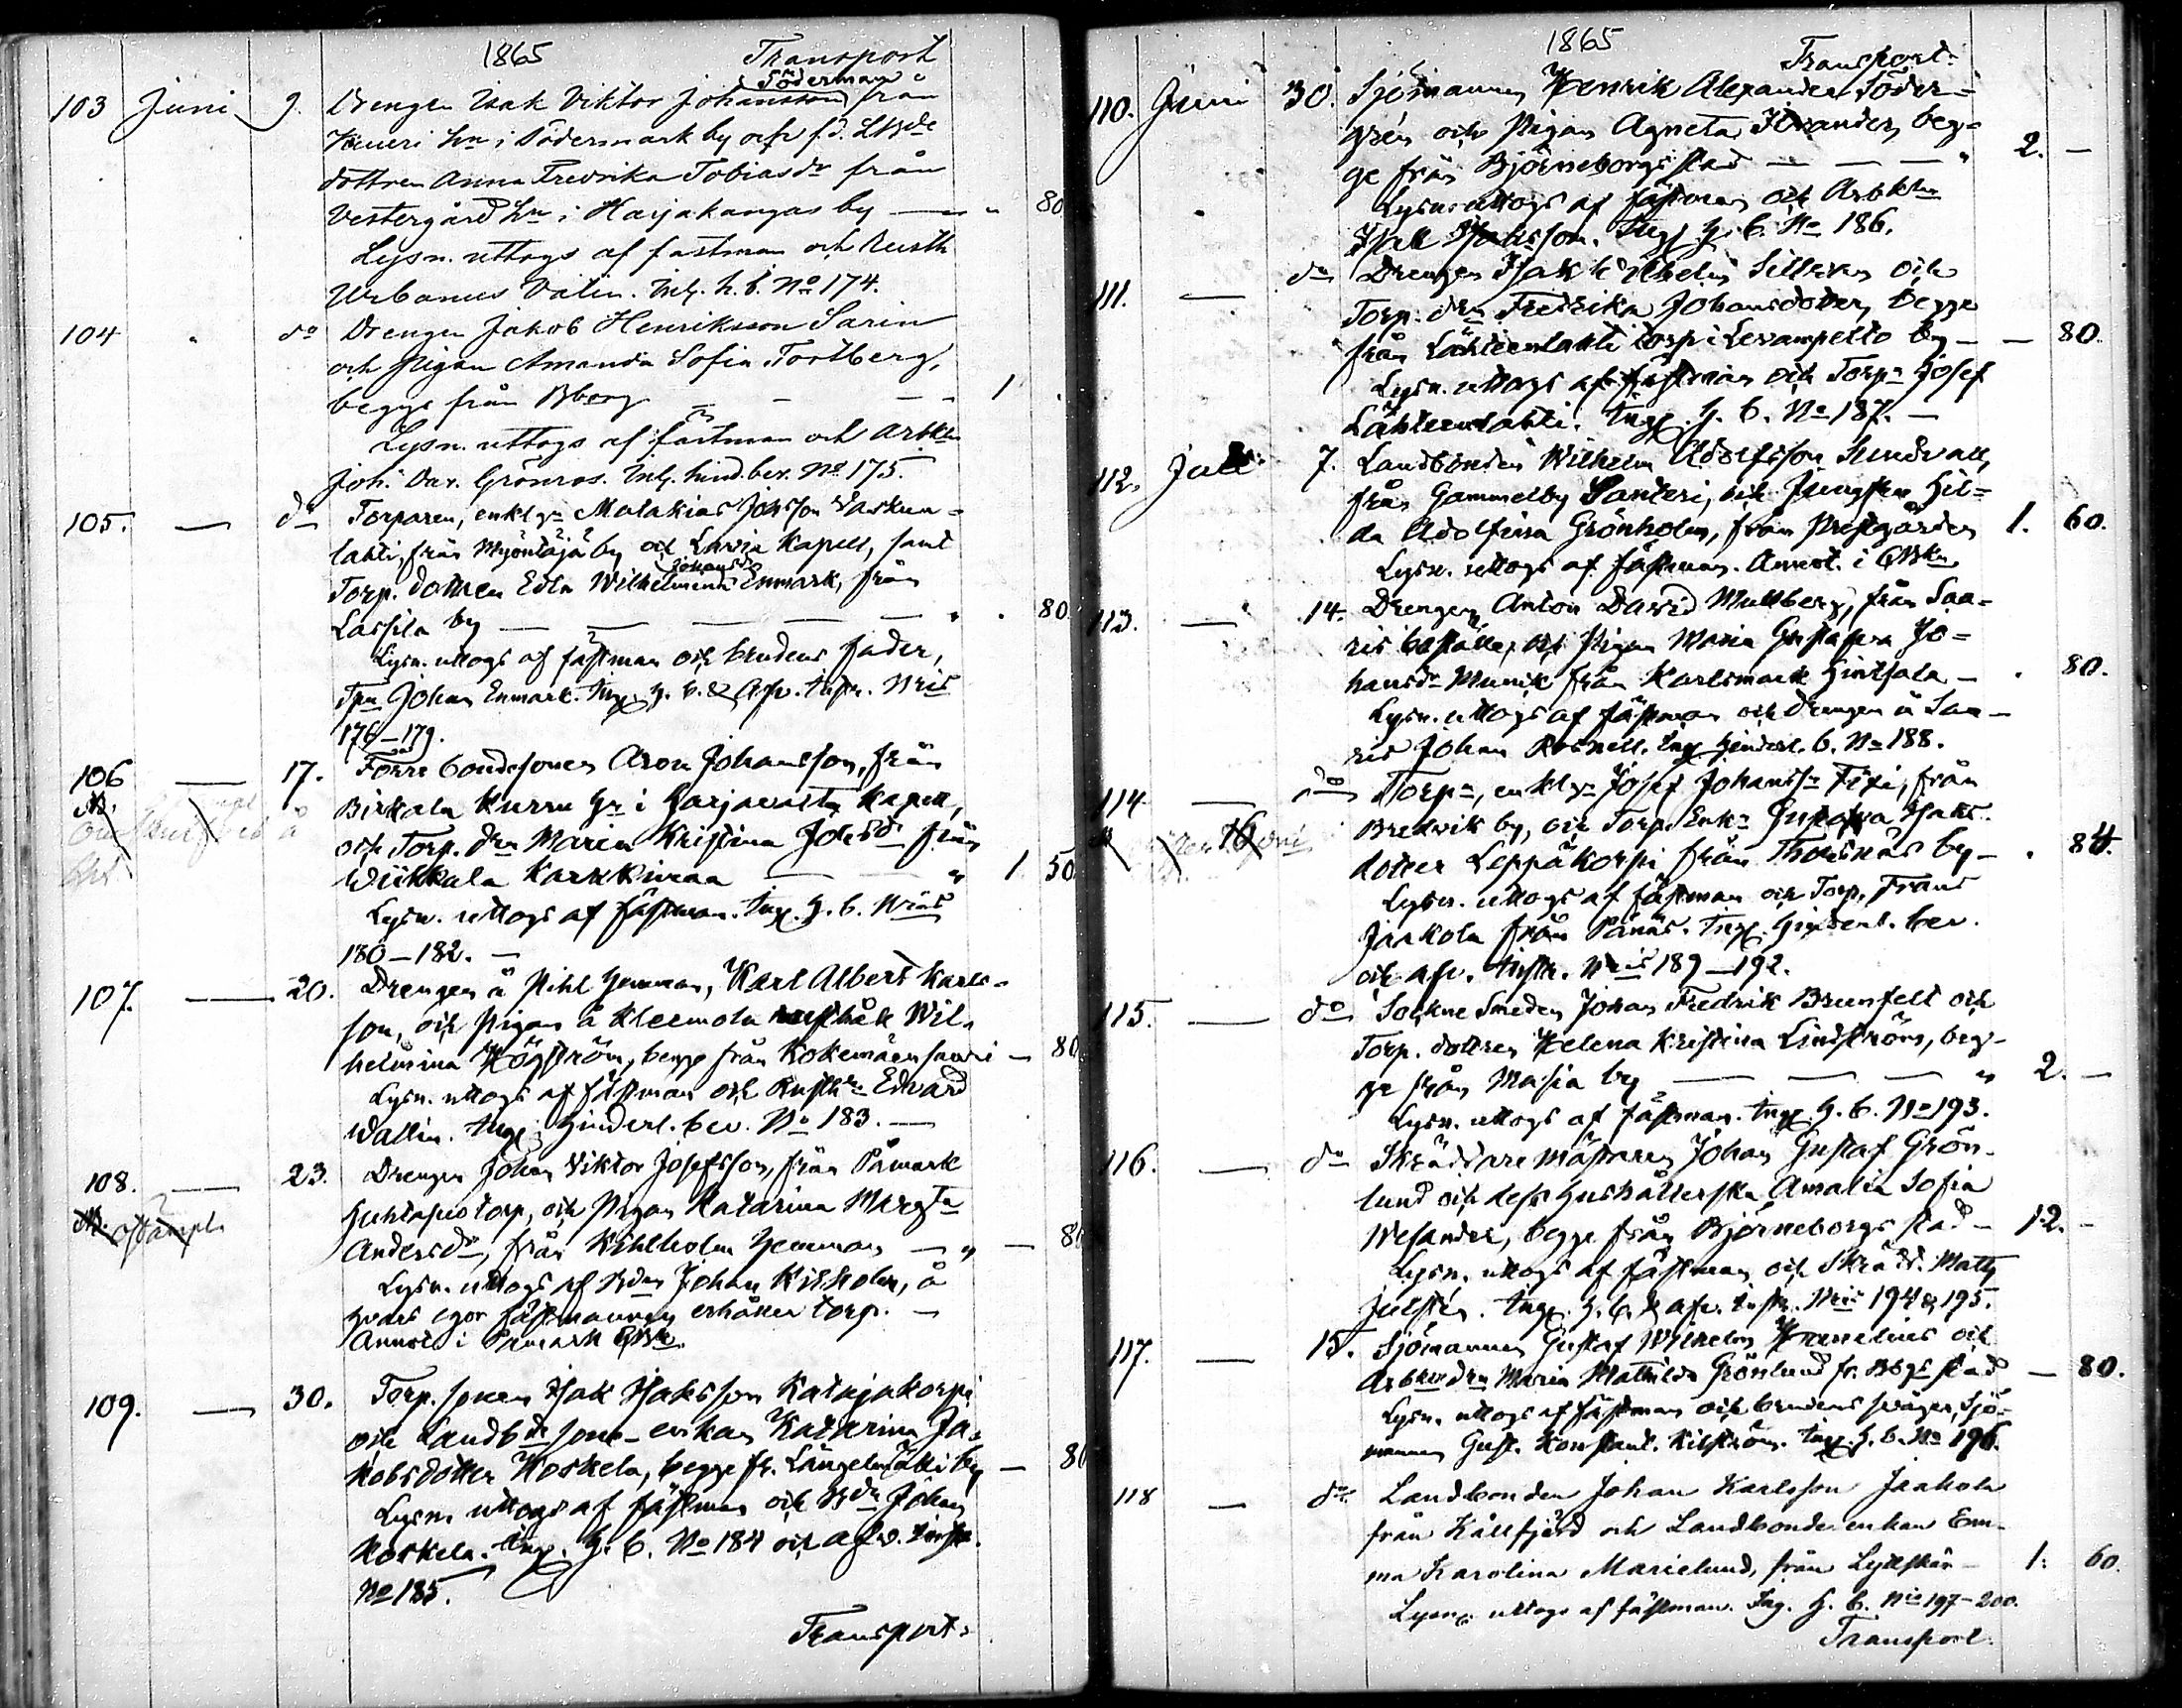 1865 Transport
Söderman
103 Juni 9. Drengen Isak Viktor Johansson från
Heueri hn i Södermark by och f.d. LBde
dottren Anna Fredrika Tobiasdr från
Vestergård hn i Harjakangas by — " 80
Lysn. uttogs af fästman och Rusth
Urbanus Valin. Inl. h.b. No 174.
104 " do Drengen Jakob Henriksson Sarin
och Pigan Amanda Sofia Tortberg,
begge från Bborg — — — 1 .
Lysn. uttogs af fästman och Arbkn
Joh. Dav. Grönros. Inl. hind.bev. No 175.
105. — do Torparen, enkl gn Malakias Johsson
lahti, från Myöntäjä by och Lavia Kapell, samt
Johansdr
Torp. dottren Edla Wilhelmina Enmark, från
Lassila by — — — — — " . 80.
Lysn. uttogs af fästman och brudens fader,
Tpn Johan Enmark. Ing. h. b. & Afv. Infr. Nris
176–179.
106 — 17. Förre bondesonen Aron Johansson, från
Birkala Kurru hn i Harjavalta Kapell,
och Torp. drn Maria Kristina Johsdr från
Wiikkala Karhkimaa — — " 1. 50.
Lysn. uttogs af fästman. Ing. h. b. Nris
180–182. —
107. — 20. Drengen å Pihl hemman, Karl Albert Karls-
son, och Pigan å Kleemola rusthåll Wil-
helmina Högström, begge från Kokemäen saari — 80
Lysn. uttogs af fästman och Rusthn Edvard
Wallin. Ing. hinderl. bev. No 183. —
108. — 23. Drengen Johan Viktor Josefsson, från Påmark
Juhtapio torp, och Pigan Katarina Margta
Andersdr, från Kihlholm hemman — " — 80
Lysn. uttogs af Bdn Johan Kihlholm, å
hvars egor fästmannen erhåller torp. —
Annot. i Påmark
109. — 30. Torp. sonen Isak Isaksson Katajakorpi
och Landbde sone-enkan Katarina Ja-
kobsdotter Koskela, begge fr. Längelmäkki by — 80
Lysn. uttogs af fästman och Bdn Johan
Koskela. Ing. h. b. No 184 och afv. infr.
No 185.
Transport.
1865
Transport.
110. Juni 30. Sjömannen Henrik Alexander Söder-
grén och Pigan Agneta Ilvander, beg-
ge från Björneborgs stad — — — " 2. —
Lysn. uttogs af fästman och Arbkln
Isak Isaksson. Ing. h. b. No 186.
111. — do Drengen Isak Wilhelm Sillvén och
Torp. drn Fredrika Johansdotter, begge
från Lähteenlahti torp i Levanpelto by — — 80.
Lysn. uttogs af fästman och Torpn Josef
Lähteenlahti. Ing. h. b. No 187. —
112. Juli 7. Landbonden Wilhelm Adolfsson Sundvall,
från Gammelby Santeri, och Jungfrun Hil-
da Adolfina Grönholm, från Prestgården 1. 60.
Lysn. uttogs af fästman. Annot. i
113. — 14. Drengen Anton David Mullberg, från Saa-
ris boställe, och Pigan Maria Gustafva Jo-
hansdr Munik från Karlsmark Hintsala — . 80.
Lysn. uttogs af fästman och drengen å Saa-
ris Johan Rosnell. Ing. hinderl. b. No 188.
114. — do Torpn, enkl gn Josef Johanssn Fixi, från
Bredvik by, och Torp. Enkn Gustafva Isaks-
dotter Leppäkorpi från Thorsnäs by — . 80.
Lysn. uttogs af fästman och Torp. Frans
Jaakola från Pånäs. Ing. hinderl. bev.
och afv. infr. Nris 189–192.
115. — do Sockne Smeden Johan Fredrik Brunfelt och
Torp. dottren Helena Kristina Lindström, beg-
ge från Masia by — — — " 2. —
Lysn. uttogs af fästman. Ing. h. b. No 193.
116. — do Skräddaremästaren Johan Gustaf Grön-
lund och dess hushållerska Amalia Sofia
Wesander, begge från Björneborgs stad — 12. —
Lysn. uttogs af fästman och Skrädd. Matts
Julsén. Ing. h. b. & afv. infr. Nris 194 & 195.
117. — 15. Sjömannen Gustaf Wilhelm Hamelius och
Arbkarldrn Maria Mathilda Grönlund fr. Bbgs stad — 80.
Lysn. uttogs af fästman och brudens svåger, Sjö-
mannen Gust. Konstant. Kihlström. Ing. h. b. No 196.
118 — do Landbonden Johan Karlsson Jaakola
från Kållfjerd och Landbonde enkan Em-
ma Karolina Marielund, från Lyttskär — 1. 60.
Lysng. uttogs af fästman. Ing. h. b. Nris 197–200.
Transport.